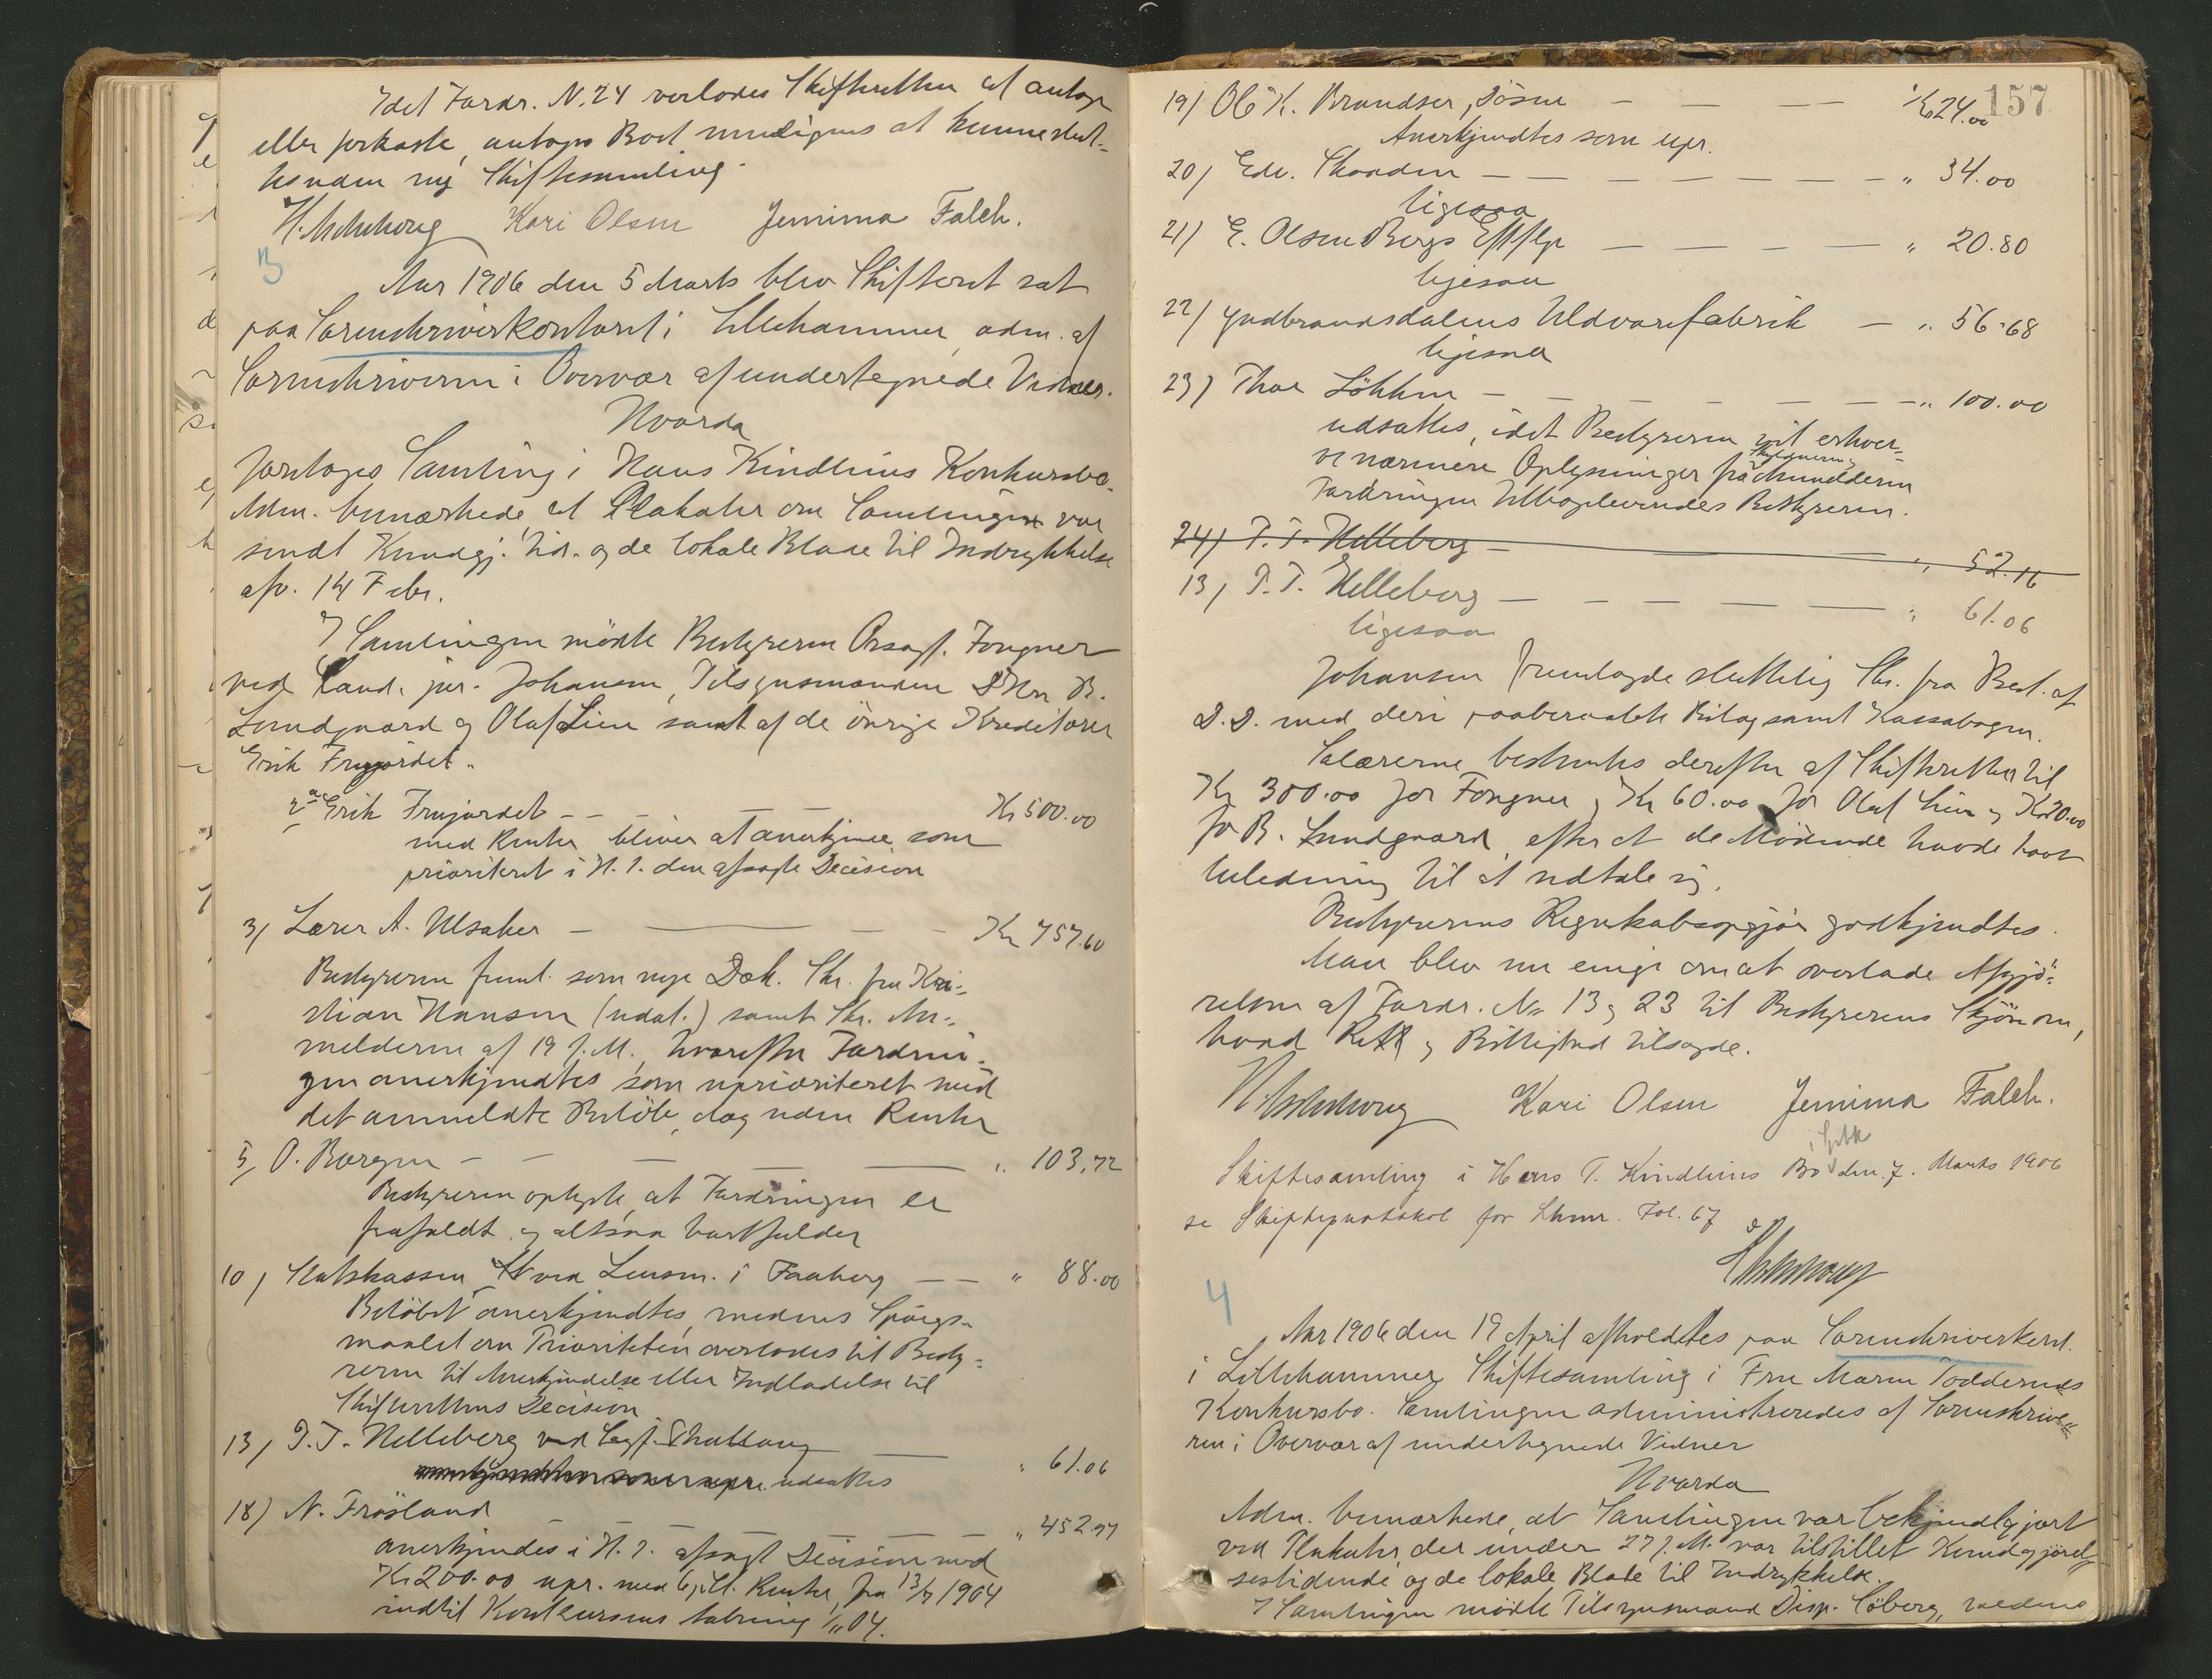 Idet Fordr. N. 24 overlodes Skifteretten at antage
eller forkaste, antages Boet muligens at kunne slut-
tes uden ny Skiftesamling.
Kari Olsen Jemima Falch.
3
Aar 1906 den 5 Marts blev Skifteret sat
paa Sorenskriverkontoret i Lillehammer, adm. af
Sorenskriveren i Overvær af undertegnede Vidner.
Hvorda
foretoges Samling i Hans Kindlius Konkursbo.
Adm. bemærkede, at Plakater om Samlingen var
sendt Kundgj. tid. og de lokale Blade til Indrykkelse
afv. 14 Febr.
I Samlingen mödte Bestyreren Ovsagf. Fougner
ved Cand. jur. Johansen, Tilsynsmændene D'Hrr B.
Lundgaard og Olaf Lien samt af de övrige Kreditorer
Erik Frujordet.
2a Erik Frujordet - - - Kr 500.00
med Renter bliver at anerkjende som
prioriteret i H. t. den afsagte Decision
3, Lærer A. Ulsaker - - - Kr 757.60
Bestyreren freml. som nye Dok. Skr. fra Kri-
stian Hansen (udat.) samt Skr. An-
melderen af 19 f. M., hvorefter Fordrin-
gen anerkjendtes som uprioriteret med
det anmeldte Belöb, dog uden Renter
5, O. Borgen - - - " 103,72
Bestyreren oplyste, at Fordringen er
frafaldt og altsaa bortfalder
10, Statskassen ved Lensm. i Faaberg - - " 88.00
Belöbet anerkjendtes, medens Spörgs-
maalet om Prioriteten overlodes til Besty-
reren til Anerkjendelse eller Indladelse til
Skifterettens Decision
13, P. T. Helleberg ved Sagf. - " 61.06
udsattes
18) N. Fröisland - - - " 452.77
anerkjendes i H. t. afsagt Decision med
Kr 200.00 upr. med 6 pCt. Renter fra 13/7 1904
indtil Konkursens Aabning 1/11 04.
157
19) Ole K. Brandser, Jösne - - - Kr 24.00
Anerkjendtes som upr.
20) Edv. Skonden - - - " 34.00
ligesaa
21) E. Olsen Bergs Eftflgr - - - " 20.80
ligesaa
22) Gudbrandsdalens Uldvarefabrik - " 56.68
ligesaa
23) Thor Lökken - - - " 100.00
udsattes, idet Bestyreren vil erhver-
ve nærmere Oplysninger fra Anmelderen
Fordringen tilbageleveredes Bestyreren.
24) P. T. Helleberg - " 52.16
13, P. T. Helleberg - - - " 61.06
ligesaa
Johansen fremlagde sluttelig Skr. fra Best. af
D. D. med deri paaberaabte Bilag samt Kassabogen.
Salærerne bestemtes derefter af Skifteretten til
Kr 300.00 for Fougner, Kr 60.00 for Olaf Lien og Kr 20.00
for B. Lundgaard, efter at de Mödende havde havt
Anledning til at udtale sig.
Bestyrerens Regnskabsopgjör godkjendtes.
Man blev nu enige om at overlade Afgjö-
relsen af Fordr. No 13 og 23 til Bestyrerens Skjön om,
hvad Ret og Billighed tilsagde.
Kari Olsen Jemima Falch.
Skiftesamling i Hans T. Kindlius Bo den 7. Marts 1906
se Skifteprotokol for Lhmr. Fol. 67
4
Aar 1906 den 19 April afholdtes paa Sorenskriverkont.
i Lillehammer Skiftesamling i Fru Maren Toddernes
Konkursbo. Samlingen administreredes af Sorenskrive-
ren i Overvær af undertegnede Vidner
Hvorda
Adm. bemærkede, at Samlingen var bekjendtgjort
ved Plakater, der under 27 f. M. var tilstillet Kundgjörel-
sestidende og de lokale Blade til Indrykkelse.
I Samlingen mödte Tilsynsmand Disp. Söberg,